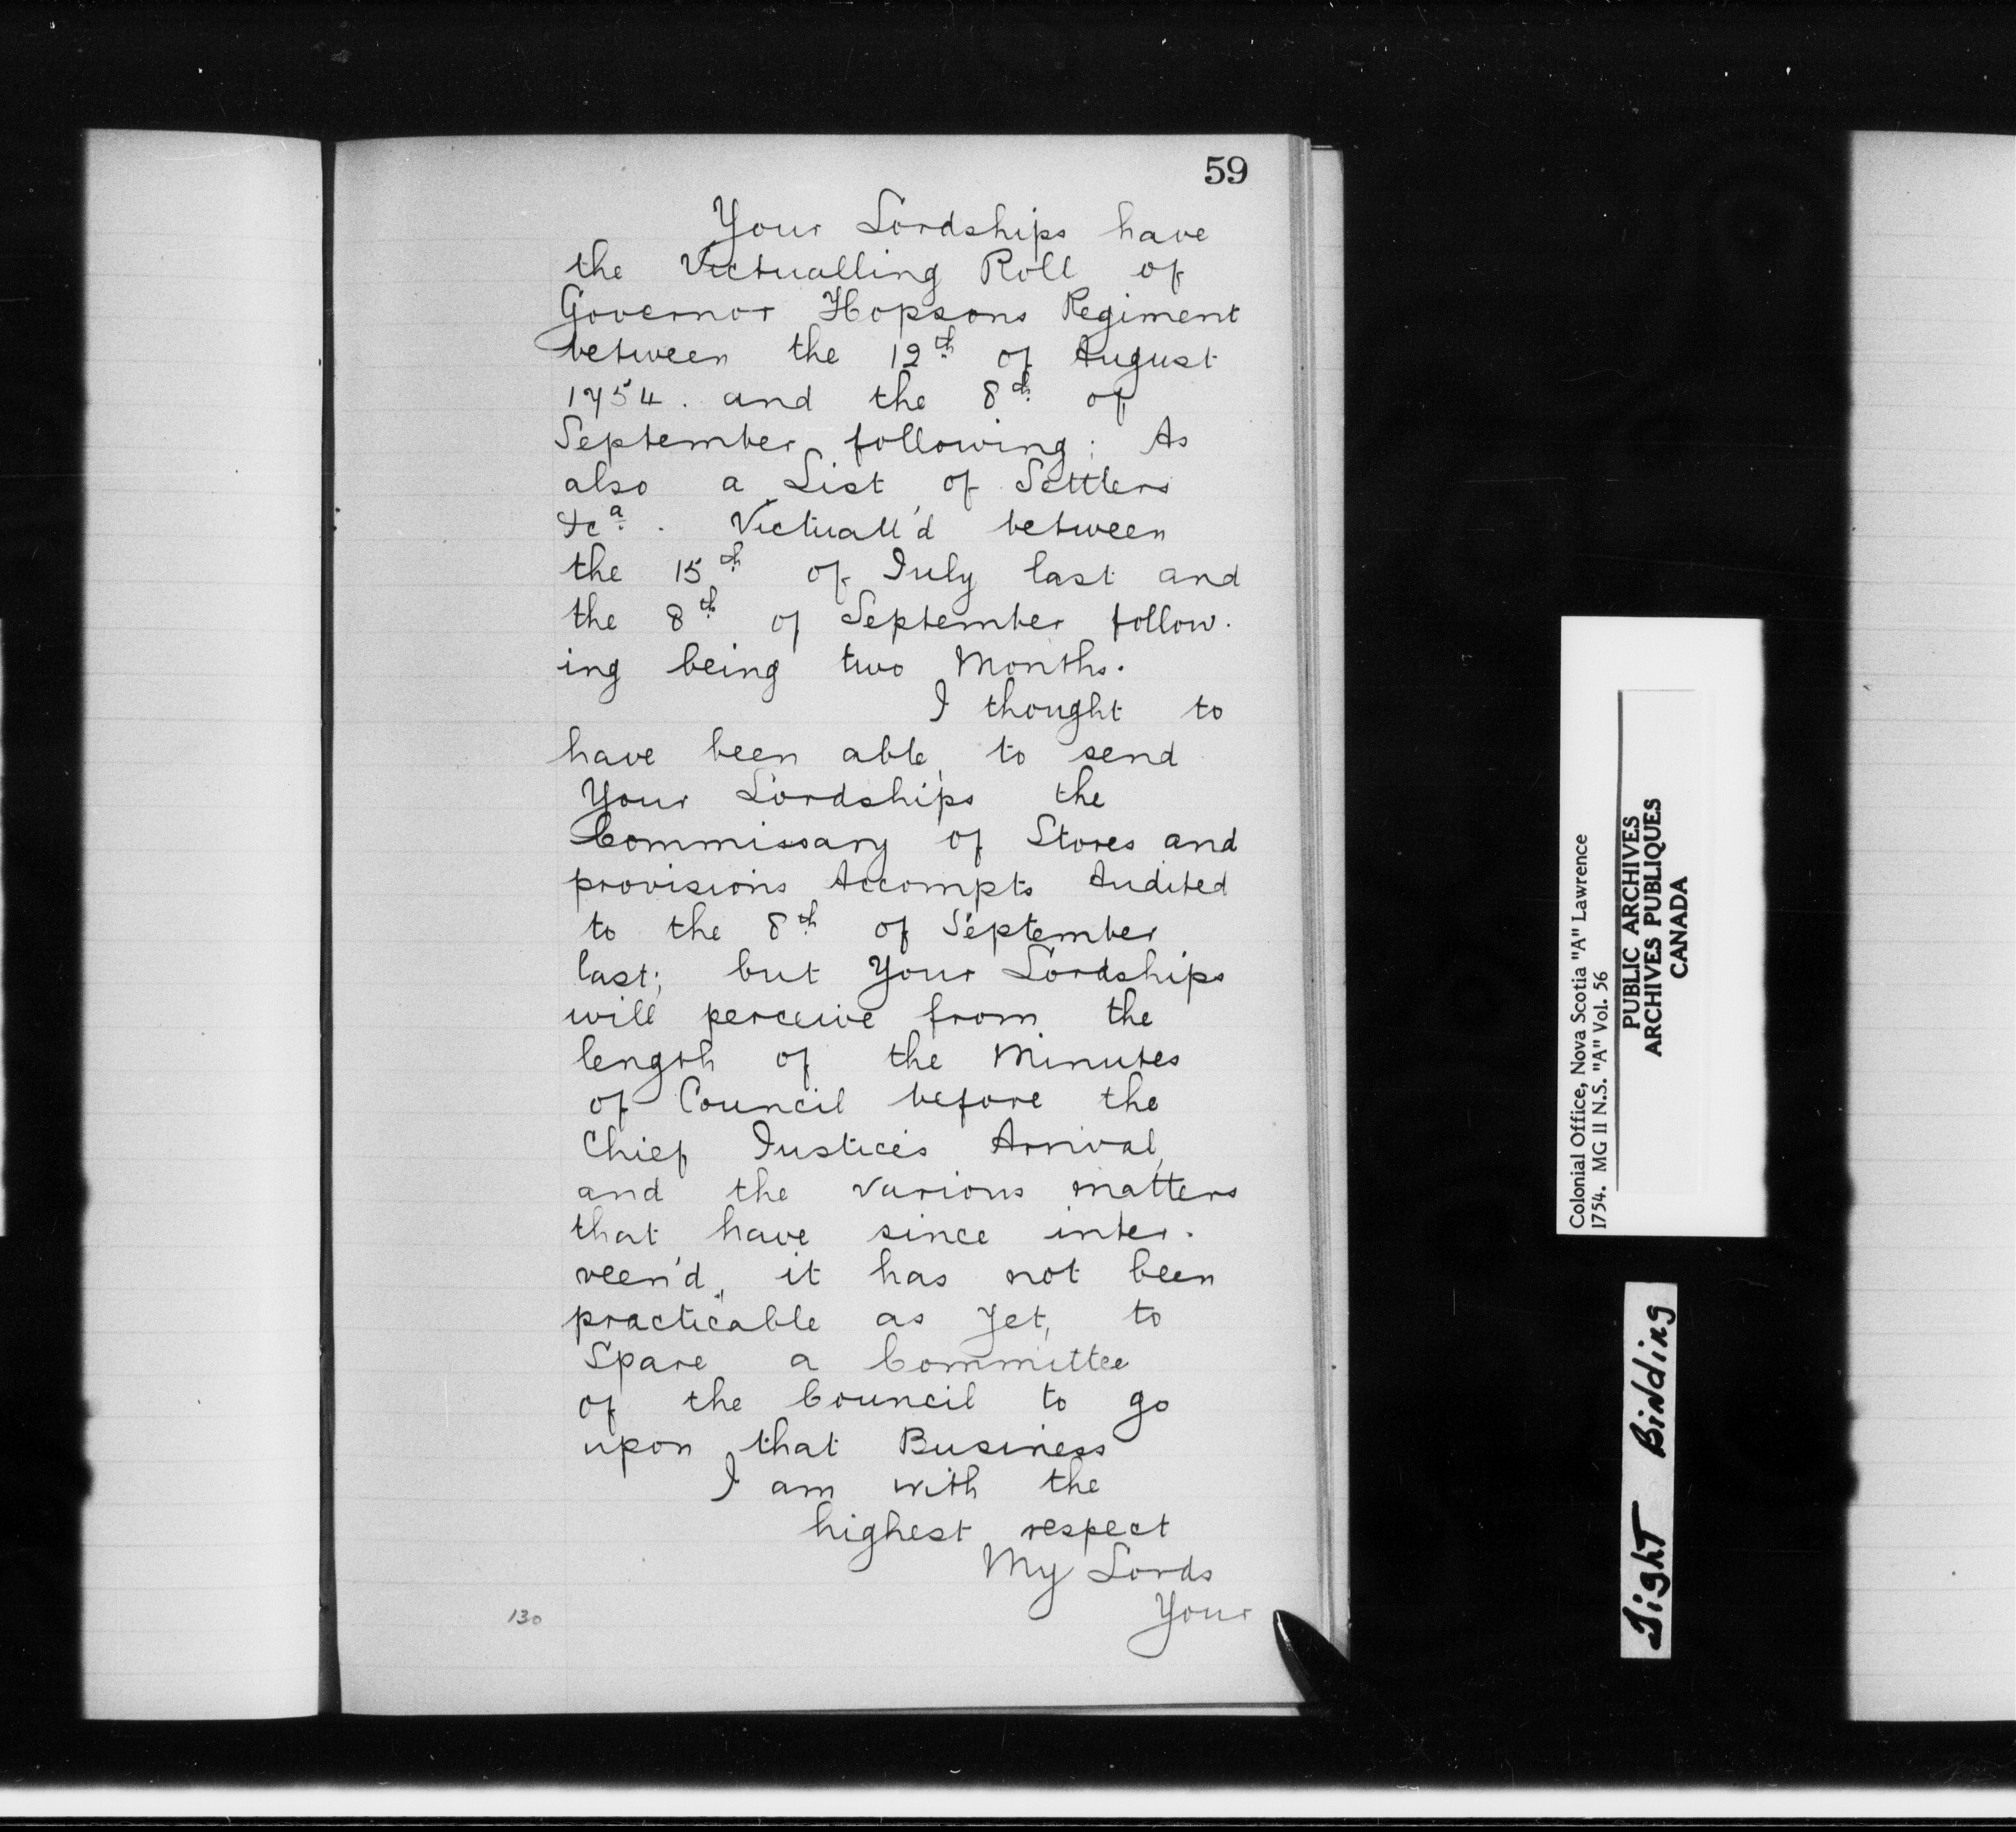 59
Your Lordships have
the Victualling Roll of
Governor Hopsons Regiment
between the 12th of August
1754. and the 8th of
September following: As
also a List of Settlers
&ca. Victuall'd between
the 15th of July last and
the 8th of September follow.
ing being two Months.
I thought to
have been able, to send
Your Lordships the
Commissary of Stores and
provisions Accompts Audited
to the 8th of September
last; but Your Lordships
will perceive from the
length of the Minutes
of Council before the
Chief Justice's Arrival,
and the various matters
that have since inter.
veen'd, it has not been
practicable as yet, to
Spare a Committee
of the Council to go
upon that Business
I am with the
highest respect
My Lords
Your
130
Colonial Office, Nova Scotia "A" Lawrence
1754. MG 11 N.S. "A" Vol. 56
PUBLIC ARCHIVES
ARCHIVES PUBLIQUES
CANADA
Tight Binding